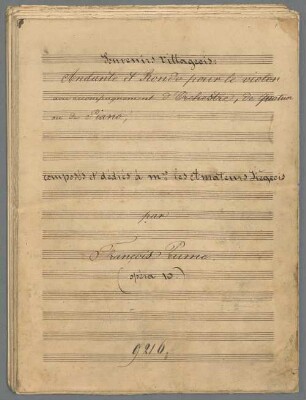 Souvenirs Villageois:
Andante et Rondo pour le violon
avec accompagnement d'Orchestre, de Quatuor
ou de Piano,
composés et dédiés à Mrs les Amateurs Liégeois
par
François Prume
(opéra 10.)
9216,